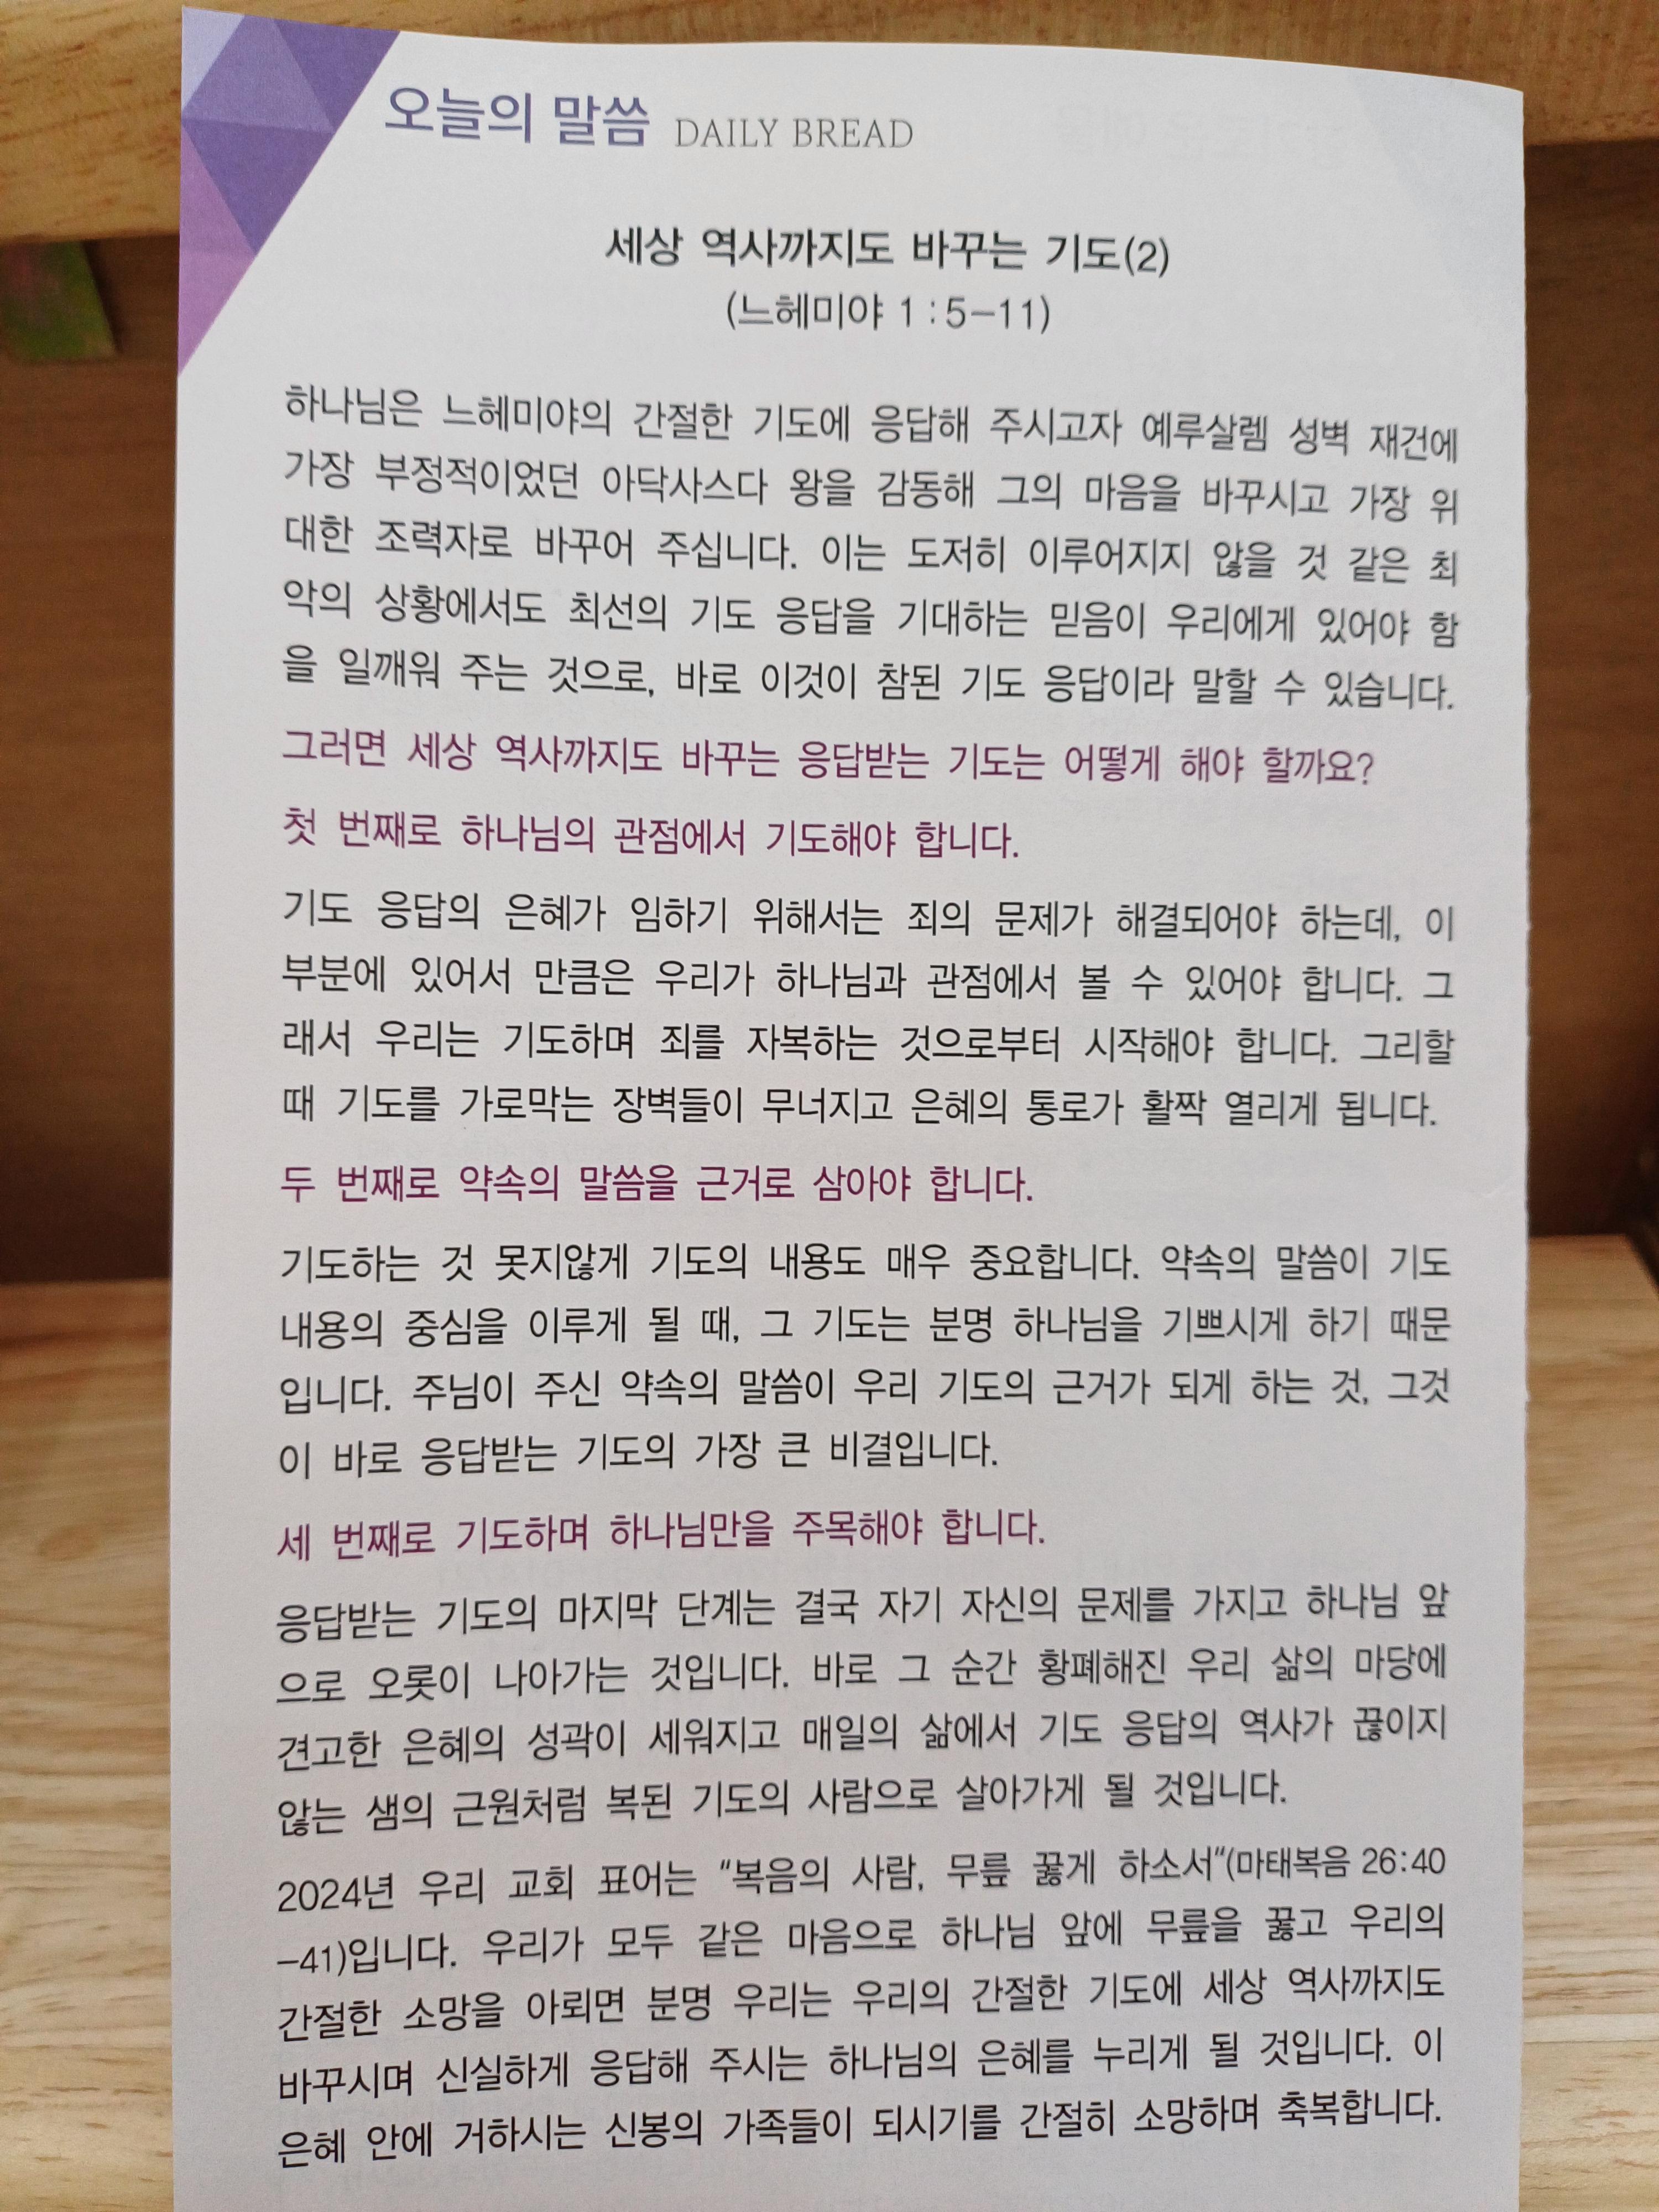 오늘의 말씀 DAILY BREAD
세상 역사까지도 바꾸는 기도(2)
(느헤미야 1 : 5-11)
하나님은 느헤미야의 간절한 기도에 응답해 주시고자 예루살렘 성벽 재건에
가장 부정적이었던 아닥사스다 왕을 감동해 그의 마음을 바꾸시고 가장 위
대한 조력자로 바꾸어 주십니다. 이는 도저히 이루어지지 않을 것 같은 최
악의 상황에서도 최선의 기도 응답을 기대하는 믿음이 우리에게 있어야 함
을 일깨워 주는 것으로, 바로 이것이 참된 기도 응답이라 말할 수 있습니다.
그러면 세상 역사까지도 바꾸는 응답받는 기도는 어떻게 해야 할까요?
첫 번째로 하나님의 관점에서 기도해야 합니다.
기도 응답의 은혜가 임하기 위해서는 죄의 문제가 해결되어야 하는데, 이
부분에 있어서 만큼은 우리가 하나님과 관점에서 볼 수 있어야 합니다. 그
래서 우리는 기도하며 죄를 자복하는 것으로부터 시작해야 합니다. 그리할
때 기도를 가로막는 장벽들이 무너지고 은혜의 통로가 활짝 열리게 됩니다.
두 번째로 약속의 말씀을 근거로 삼아야 합니다.
기도하는 것 못지않게 기도의 내용도 매우 중요합니다. 약속의 말씀이 기도
내용의 중심을 이루게 될 때, 그 기도는 분명 하나님을 기쁘시게 하기 때문
입니다. 주님이 주신 약속의 말씀이 우리 기도의 근거가 되게 하는 것, 그것
이 바로 응답받는 기도의 가장 큰 비결입니다.
세 번째로 기도하며 하나님만을 주목해야 합니다.
응답받는 기도의 마지막 단계는 결국 자기 자신의 문제를 가지고 하나님 앞
으로 오롯이 나아가는 것입니다. 바로 그 순간 황폐해진 우리 삶의 마당에
견고한 은혜의 성곽이 세워지고 매일의 삶에서 기도 응답의 역사가 끊이지
않는 샘의 근원처럼 복된 기도의 사람으로 살아가게 될 것입니다.
2024년 우리 교회 표어는 “복음의 사람, 무릎 꿇게 하소서“(마태복음 26:40
-41)입니다. 우리가 모두 같은 마음으로 하나님 앞에 무릎을 꿇고 우리의
간절한 소망을 아뢰면 분명 우리는 우리의 간절한 기도에 세상 역사까지도
바꾸시며 신실하게 응답해 주시는 하나님의 은혜를 누리게 될 것입니다. 이
은혜 안에 거하시는 신봉의 가족들이 되시기를 간절히 소망하며 축복합니다.